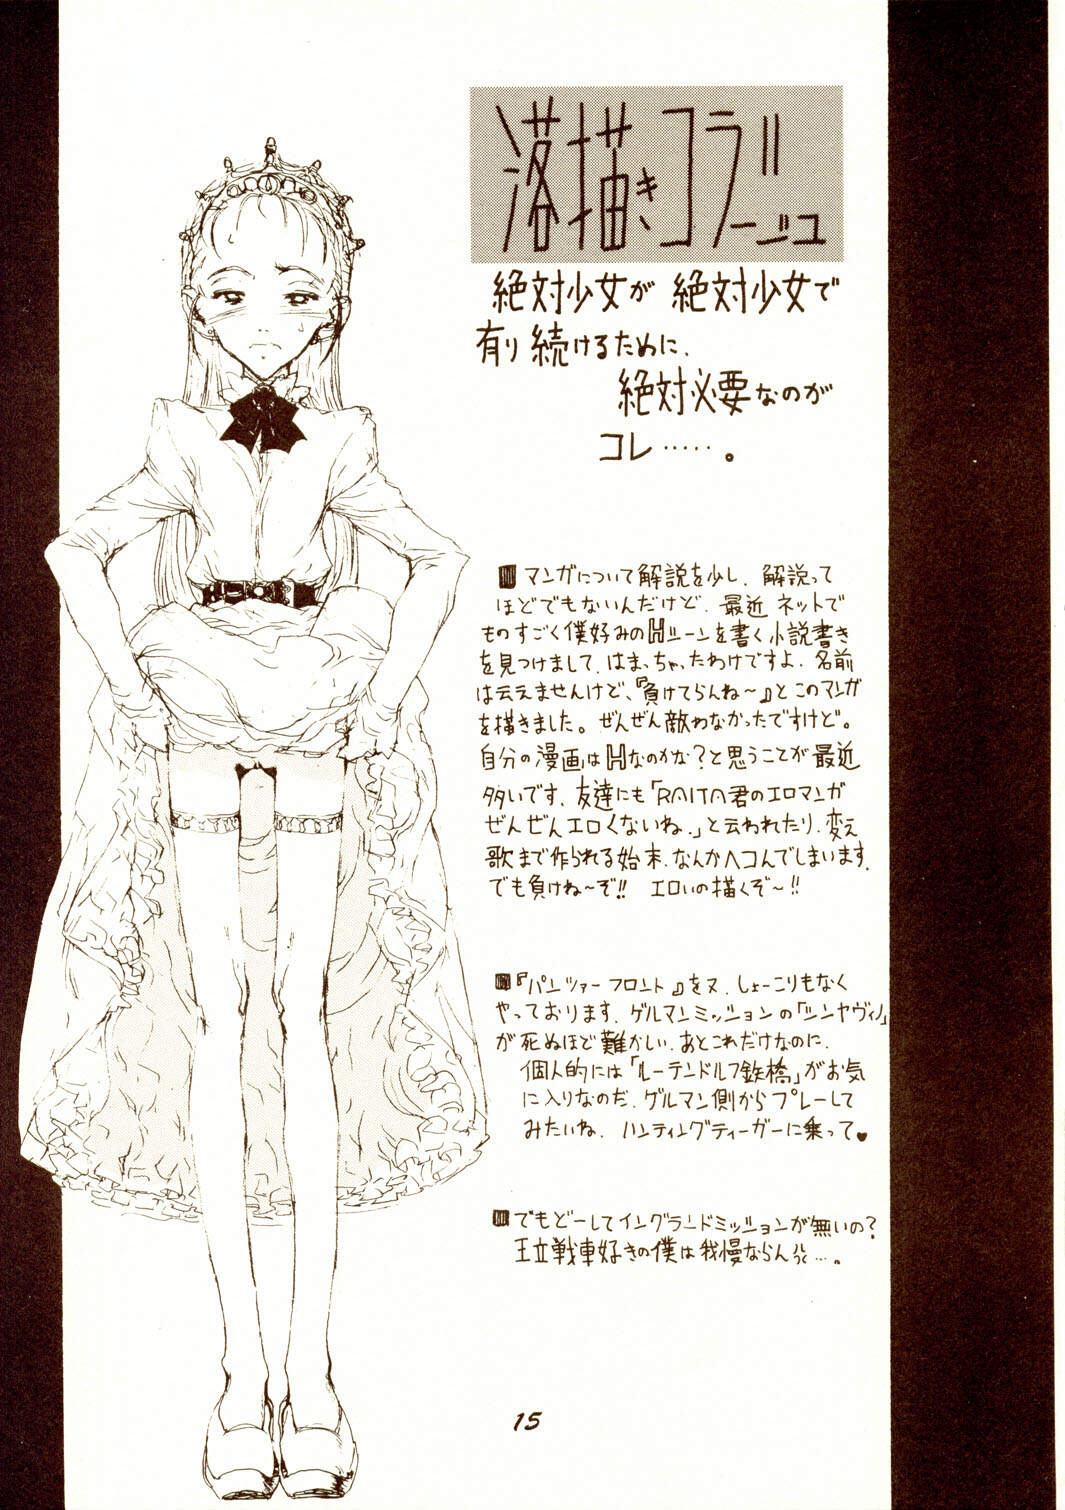 落描きコラージュ
絶対少女が 絶対少女で
有り続けるために、
絶対必要なのが
コレ……。
マンガについて解説を少し、解説って
ほどでもないんだけど、最近ネットで
ものすごく僕好みのHシーンを書く小説書き
を見つけまして、はまっちゃったわけですよ、名前
は云えませんけど、『負けてらんね〜』とこのマンガ
を描きました。ぜんぜん敵わなかったですけど。
自分の漫画はHなのかな?と思うことが最近
多いです、友達にも「RAITA君のエロマンガ
ぜんぜんエロくないね.」と云われたり、変え
歌まで作られる始末、なんかヘコんでしまいます、
でも負けね〜ぞ!! エロいの描くぞ〜!!
『パンツァーフロント』をヌ、しょーこりもなく
やっております、ゲルマンミッションの「シンヤヴィノ」
が死ぬほど難かしい、あとこれだけなのに、
個人的には「ルーテンドルフ鉄橋」がお気
に入りなのだ、ゲルマン側からプレーして
みたいね、ハンティングティーガーに乗って♥
でもどーしてイングランドミッションが無いの?
王立戦車好きの僕は我慢ならん…。
15